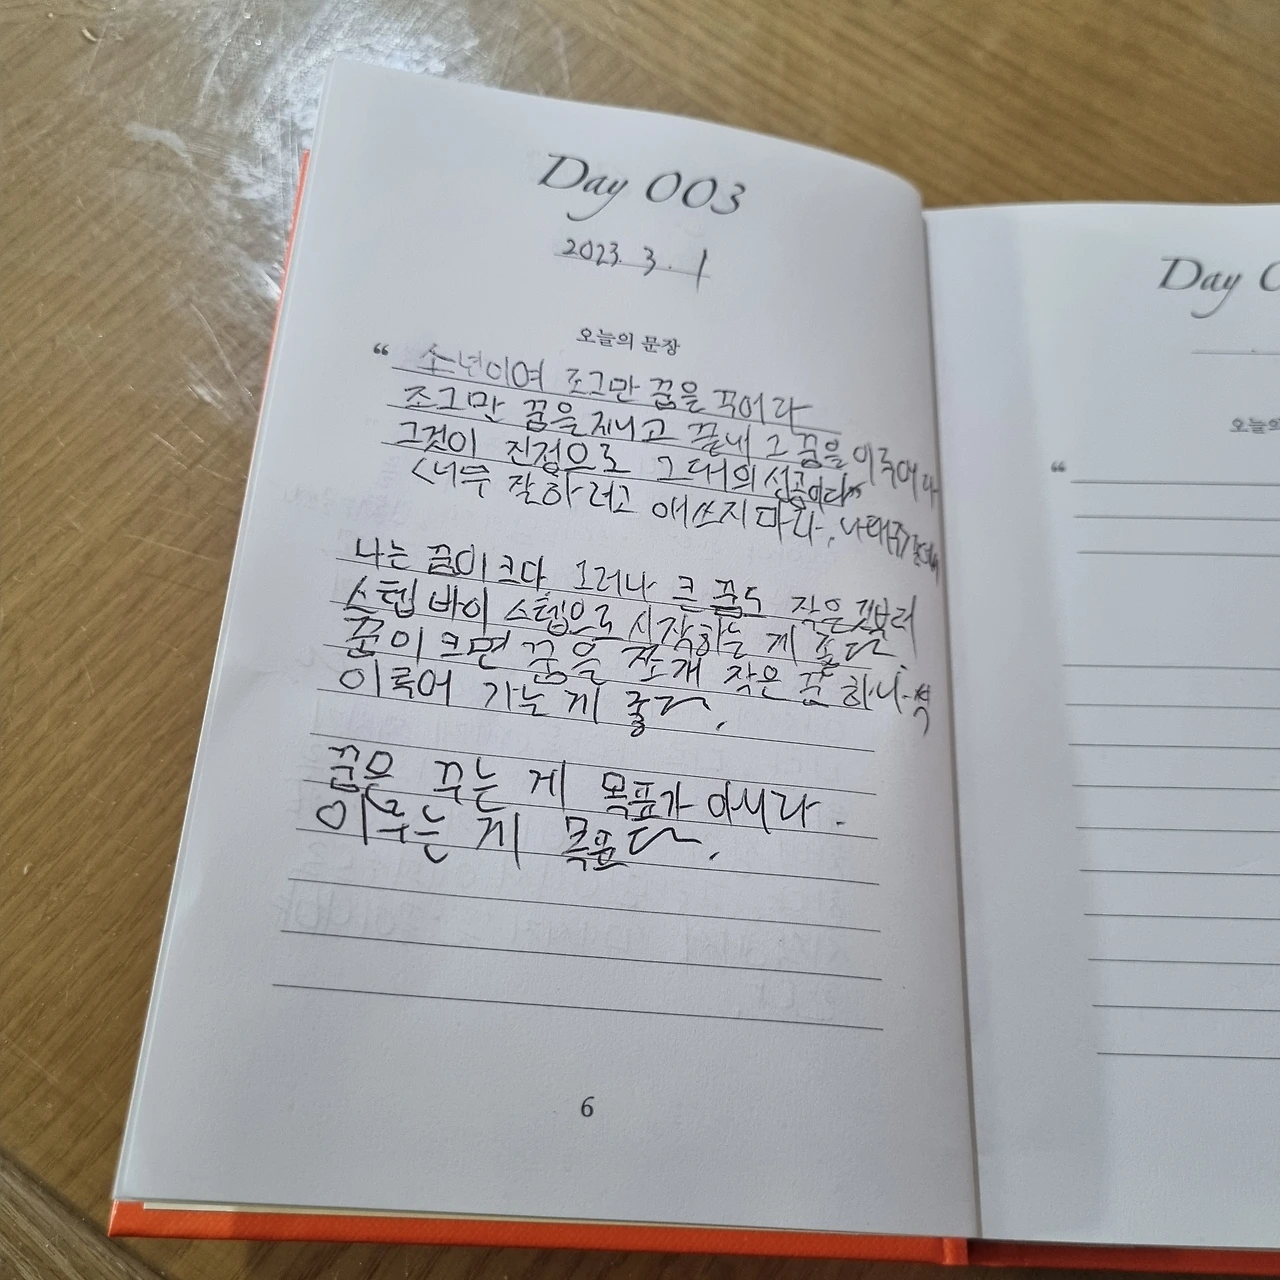 Day 003
2023. 3. 1
오늘의 문장
“ 소년이여 조그만 꿈을 꾸어라
조그만 꿈을 지니고 끝내 그 꿈을 이루어라
그것이 진정으로 그대의 성공이다”
<너무 잘하려고 애쓰지 마라, 나태주
나는 꿈이 크다. 그러나 큰 꿈도 작은 것부터
스텝 바이 스텝으로 시작하는 게 좋다.
꿈이 크면 꿈을 쪼개 작은 꿈 하나씩
이루어 가는 게 좋다.
꿈은 꾸는 게 목표가 아니라.
이루는 게 목표다.
6
Day 0
오늘의
“